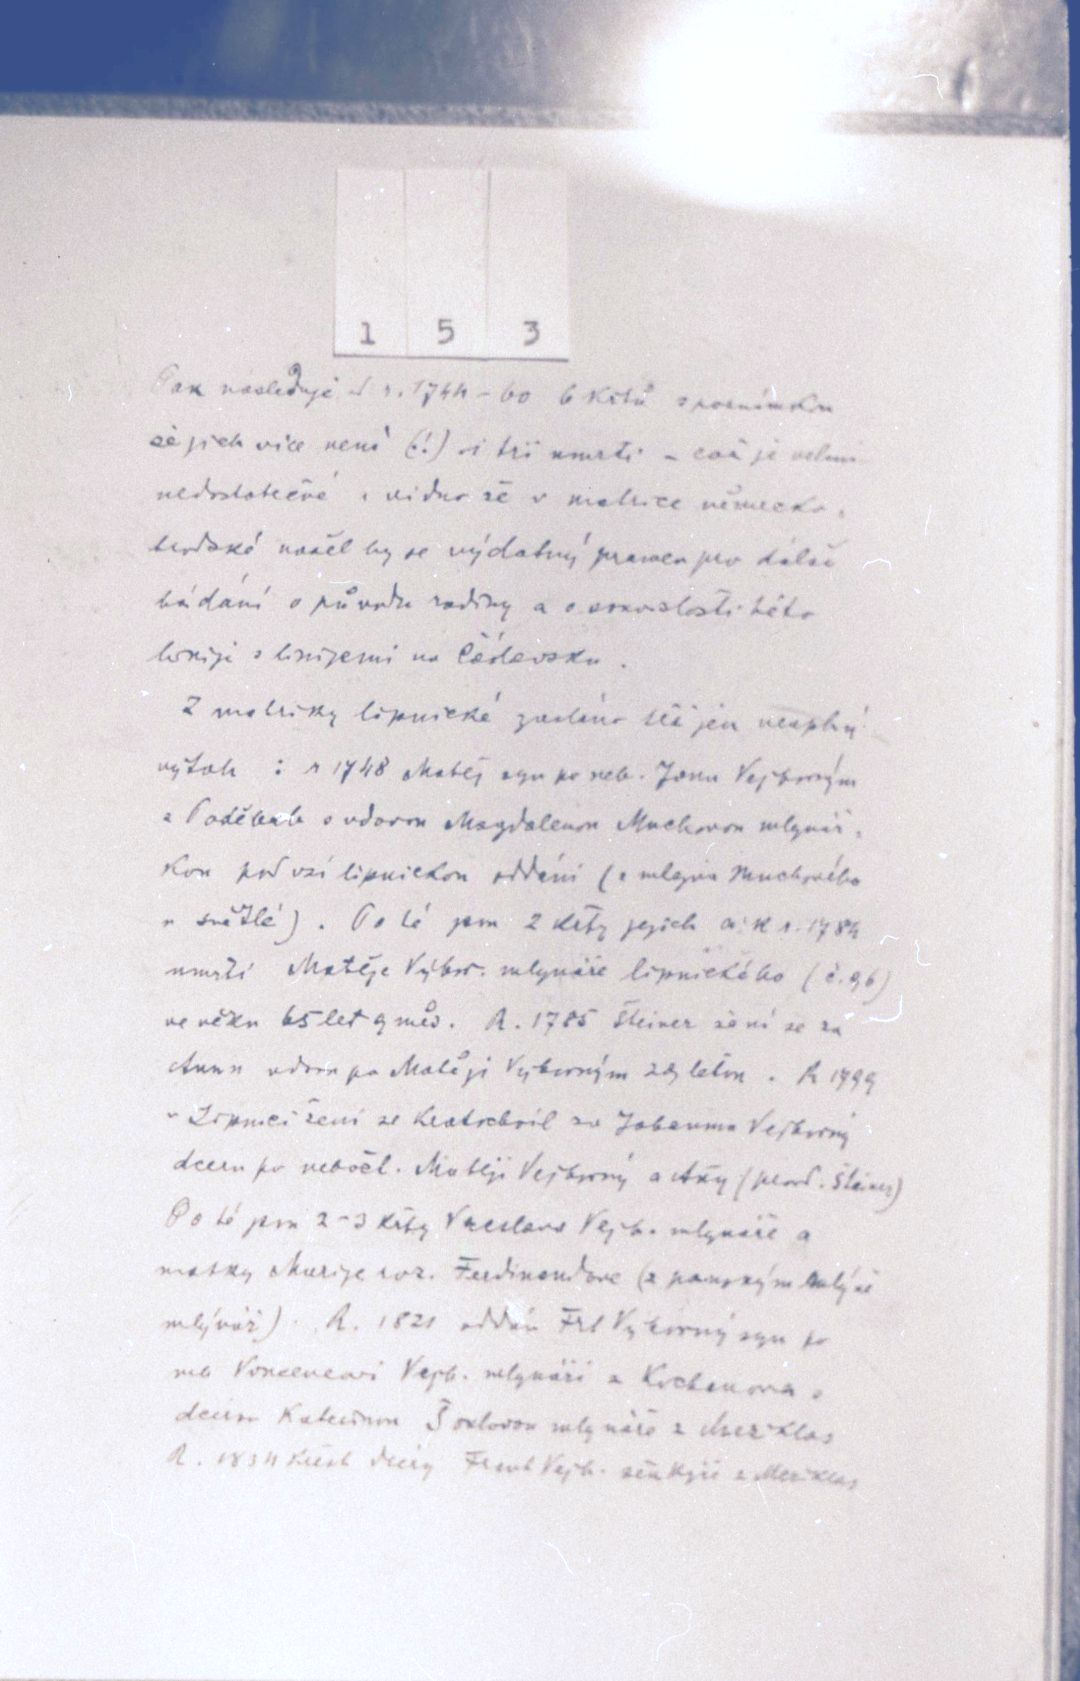 1 5 3
Pak následuje od r. 1744 – 60 6 křtů s poznámkou
že jich více není (!) ni tři úmrtí – což je velmi
nedostatečné a vidno že v matrice německo-
brodské našel by se výdatný pramen pro další
bádání o původu rodiny a o souvislosti této
linije s linijemi na Čáslavsku.
Z matriky lipnické zasláno též jen neúplný
výtah : r 1748 Matěj syn po neb. Janu Vejborným
z Poděbab s vdovou Magdalenou Muchovou mlynář-
kou pod vsí lipnickou oddáni (z mlejna Muchového
u Světlé). Po té jsou 2 křty jejich a k r. 1784
úmrtí Matěje Výbor. mlynáře lipnického (č. 96)
ve věku 65 let 9 měs. R. 1785 Šteiner žení se za
Annu vdovu po Matěji Výborným 29 letou. R 1799
v Lipnici žení se za Johannu Vejborný
dceru po nebožt. Matěji Vejborný a Any (prov. Šteiner)
Po té jsou 2–3 křty Václava Vejb. mlynáře a
matky Marije roz. Ferdinandove (z panským mlýně
mlynář). R. 1821 oddán Frt Výborný syn po
neb Vejb. mlynáři z Kochanova s
dcerou Kateřinou mlynáře z Meziklas
R. 1834 křest dcery Frant Vejb. z Meziklas